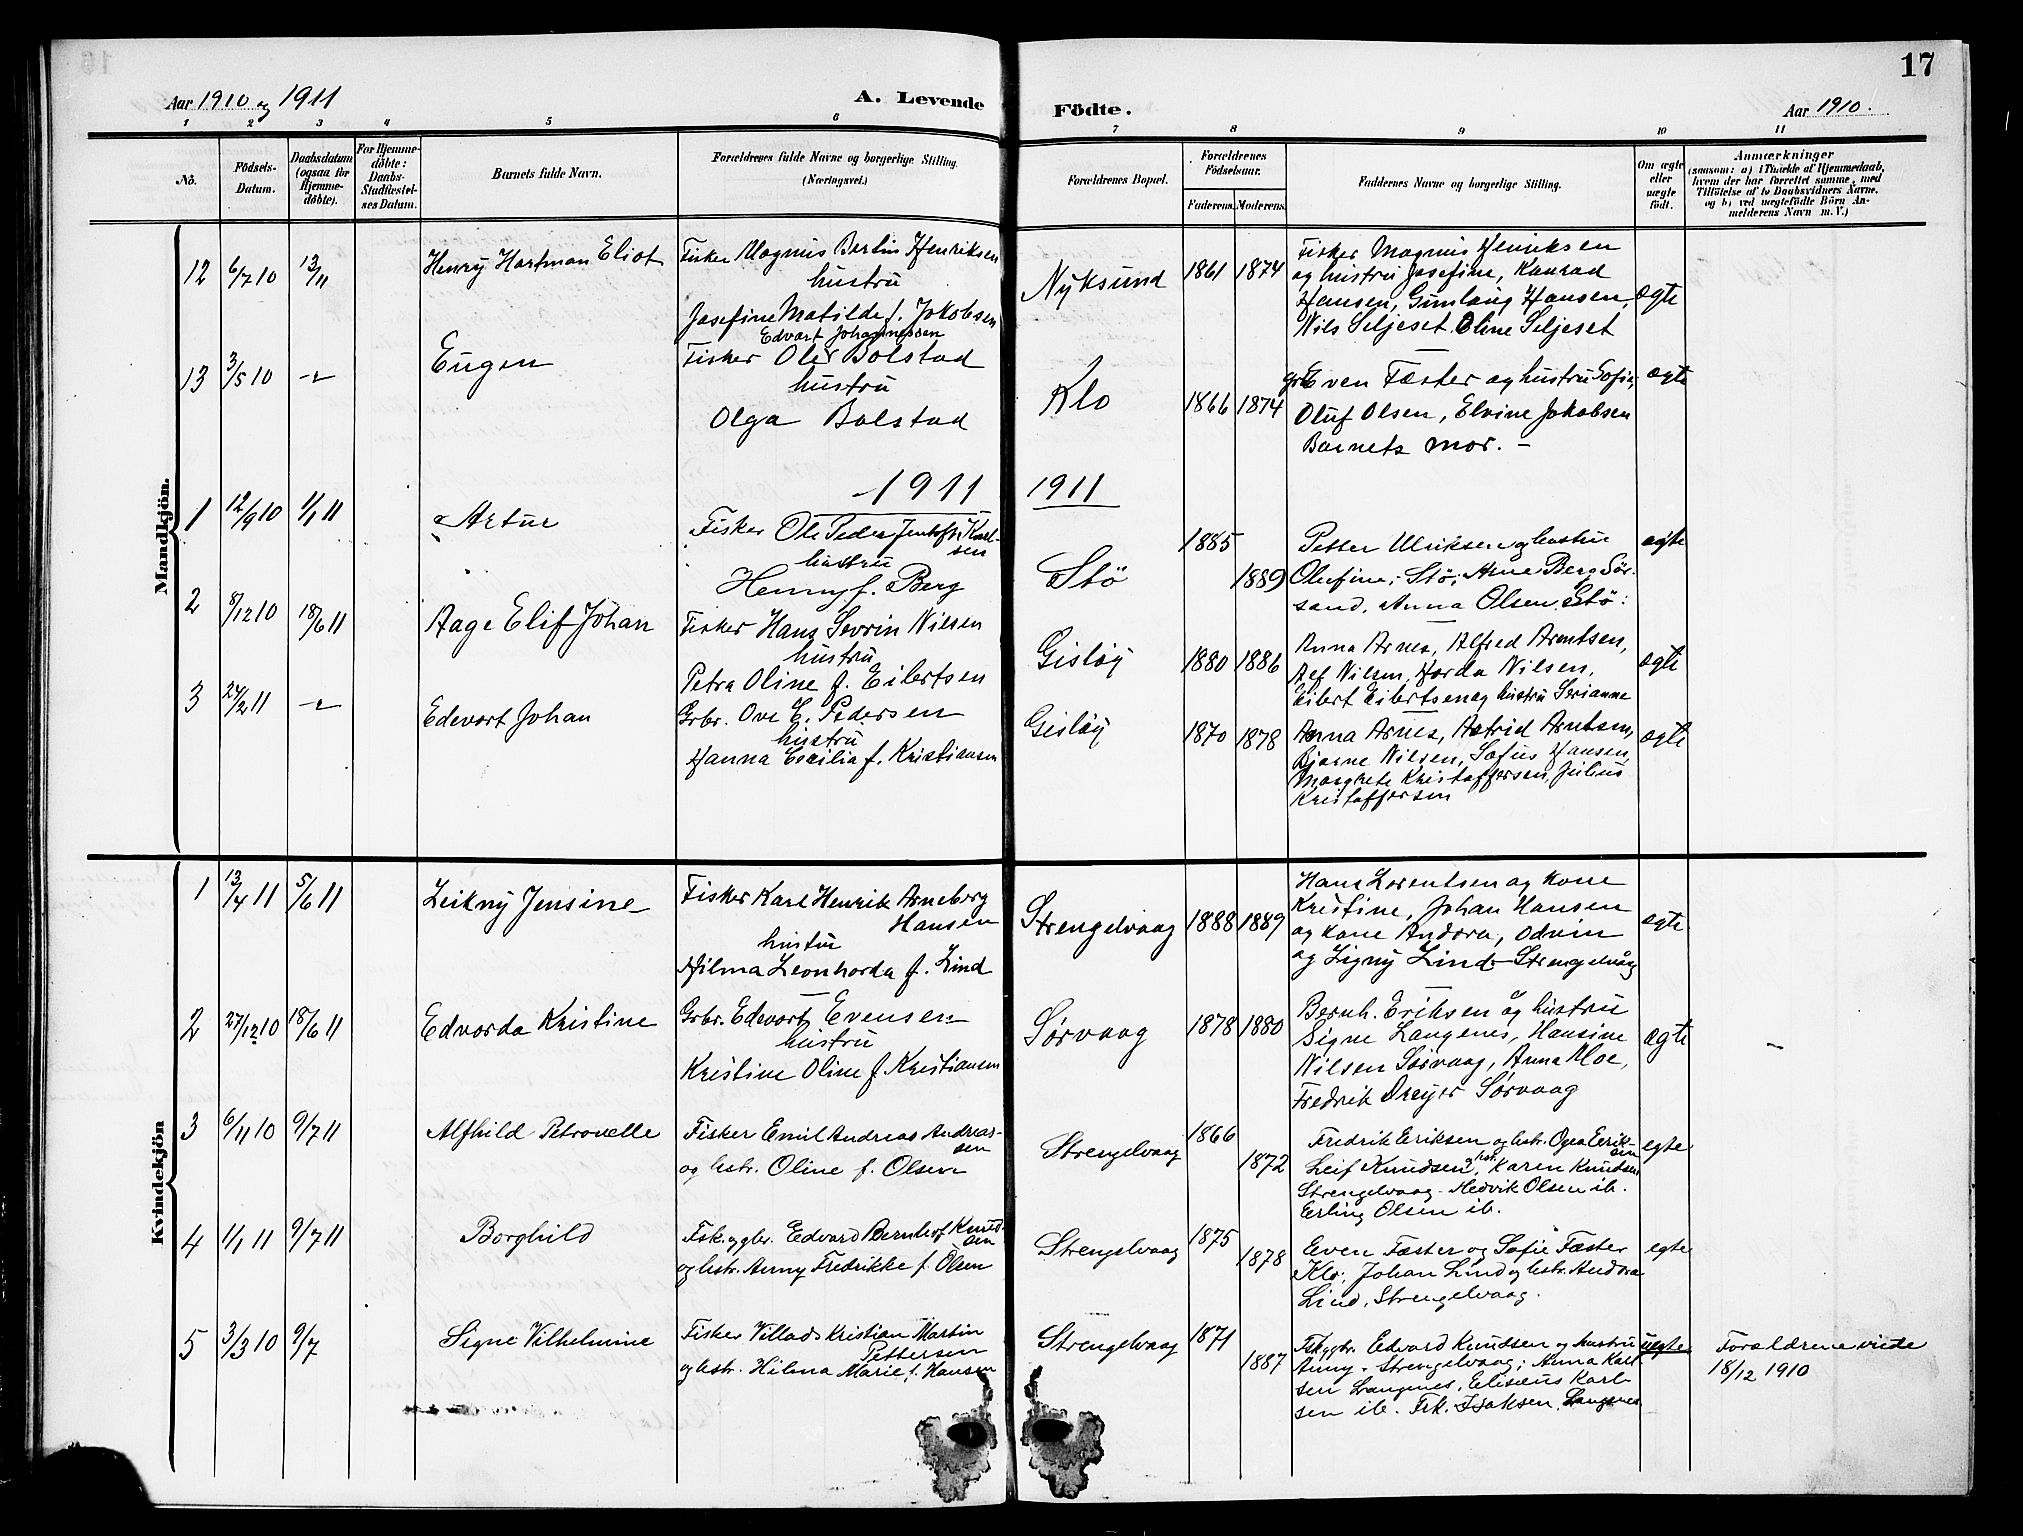 17
Aar 1910 og 1911
A. Levende
Födte.
Aar 1910.
1 2 3 4 5 6 7 8 9 10 11
No.
Födsels-
Datum.
Daabsdatum
(ogsaa for
Hjemme-
döbte).
For Hjemme-
döbte:
Daabs-
Stadfæstel-
ses Datum.
Barnets fulde Navn.
Forældrenes fulde Navne og borgerlige Stilling.
(Næringsvei.)
Forældrenes Bopæl.
Forældrenes
Födselsaar.
Faderens. Moderens.
Faddernes Navne og borgerlige Stilling.
Om ægte
eller
uægte
født.
Anmærkninger
(saasom: a) i Tilfælde af Hjemmedaab,
hvem der har forrettet samme, med
Tilföielse af to Daabsvidners Navne,
og b) ved uægtefödte Börn An-
melderens Navn m. V.)
Mandkjön.
12 6/7 10 13/11 Henry Hartman Eliot
Fisker Magnus Bertin Henriksen
hustru
Josefine Matilde f. Jakobsen
Nyksund 1861 1874
Fisker Magnus Henriksen
og hustru Josefine, Konrad
Hansen, Gunlaug Hansen,
Nils Seljeset Oline Seljeset
ægte
13 3/5 10 Eugen
Edvart Johannessen
Fisker Oler Bolstad
hustru
Olga Bolstad
Klo 1866 1874
grb Even Fæster og hustru Sofie,
Oluf Olsen, Elvine Jakobsen
Barnets mor. –
ægte
1911
1911
1 12/9 10 1/1 11 Artur
Fisker Ole Peder Jentoft Karl-
sen
hustru
Henny f. Berg
Stö 1885 1889
Petter Ulriksen og hustru
Olufine, Stö, Arne Berg Sör-
sand, Anna Olsen Stö:
ægte
2 8/12 10 18/6 11 Aage Elif Johan
Fisker Hans Sevrin Nilsen
hustru
Petra Oline f. Eilertsen
Gisløy 1880 1886
Anna Arnes, Alfred Arntsen,
Alf Nilsen, Harda Nilsen,
Eilert Eilertsen og hustru Serianne
ægte
3 24/2 11 Edevart Johan
Grbr. Ove E. Pedersen
hustru
Hanna Cecilia f. Kristiansen
Gisløy 1870 1878
Anna Arnes, Astrid Arntsen,
Bjarne Nilsen, Sofus Hansen,
Margrete Kristoffersen, Julius
Kristoffersen
ægte
Kvindekjön
1 13/4 11 5/6 11 Leikny Jensine
Fisker Karl Henrik Arneborg
Hansen
hustru
Hilma Leonharda f. Lind
Strengelvaag 1888 1889
Hans Lorentsen og kone
Kristine, Johan Hansen
og kone Andora, Odvin
og Signy Lind Strengelvåg
ægte
2 27/12 10 18/6 11 Edvarda Kristine
Grbr. Edevart Evensen
hustru
Kristine Oline f. Kristiansen
Sørvaag 1878 1880
Bernh. Eriksen og hustru
Signe Langenes, Hansine
Nilsen Sørvaag, Anna Moe,
Fredrik Dreyer Sørvaag
ægte –
3 6/11 10 9/7 11 Alfhild Petronelle
Fisker Emil Andreas Andreas-
sen
og hstr. Oline f. Olsen
Strengelvaag 1866 1872
Fredrik Eriksen og hstr. Erik-
sen
Leif Knudsen og hst. Karen Knudsen
Strengelvaag. Hedvik Olsen ib.
Erling Olsen ib.
egte
4 1/1 11 9/7 11 Borghild
Fisk. og gbr. Edvard Bernhof Knud-
sen
og hstr. Anny Fredrikke f. Olsen
Strengelvaag 1875 1878
Even Fæster og Sofie Fæster
Klo, Johan Lind og hstr. Andora
Lind, Strengelvaag.
egte
5 3/3 10 9/7 Signe Vilhelmine
Fisker Villads Kristian Martin
Pettersen
og hstr. Hilma Marie f. Hansen
Strengelvaag 1871 1887
Fsk. og gbr. Edvard Knudsen og hustru
Anny. Strengelvaag; Anna Karl-
sen Langenes, Elisæus Karl-
sen ib. Frk. Isaksen, Langenes
uegte
Forældrene viede
18/12 1910